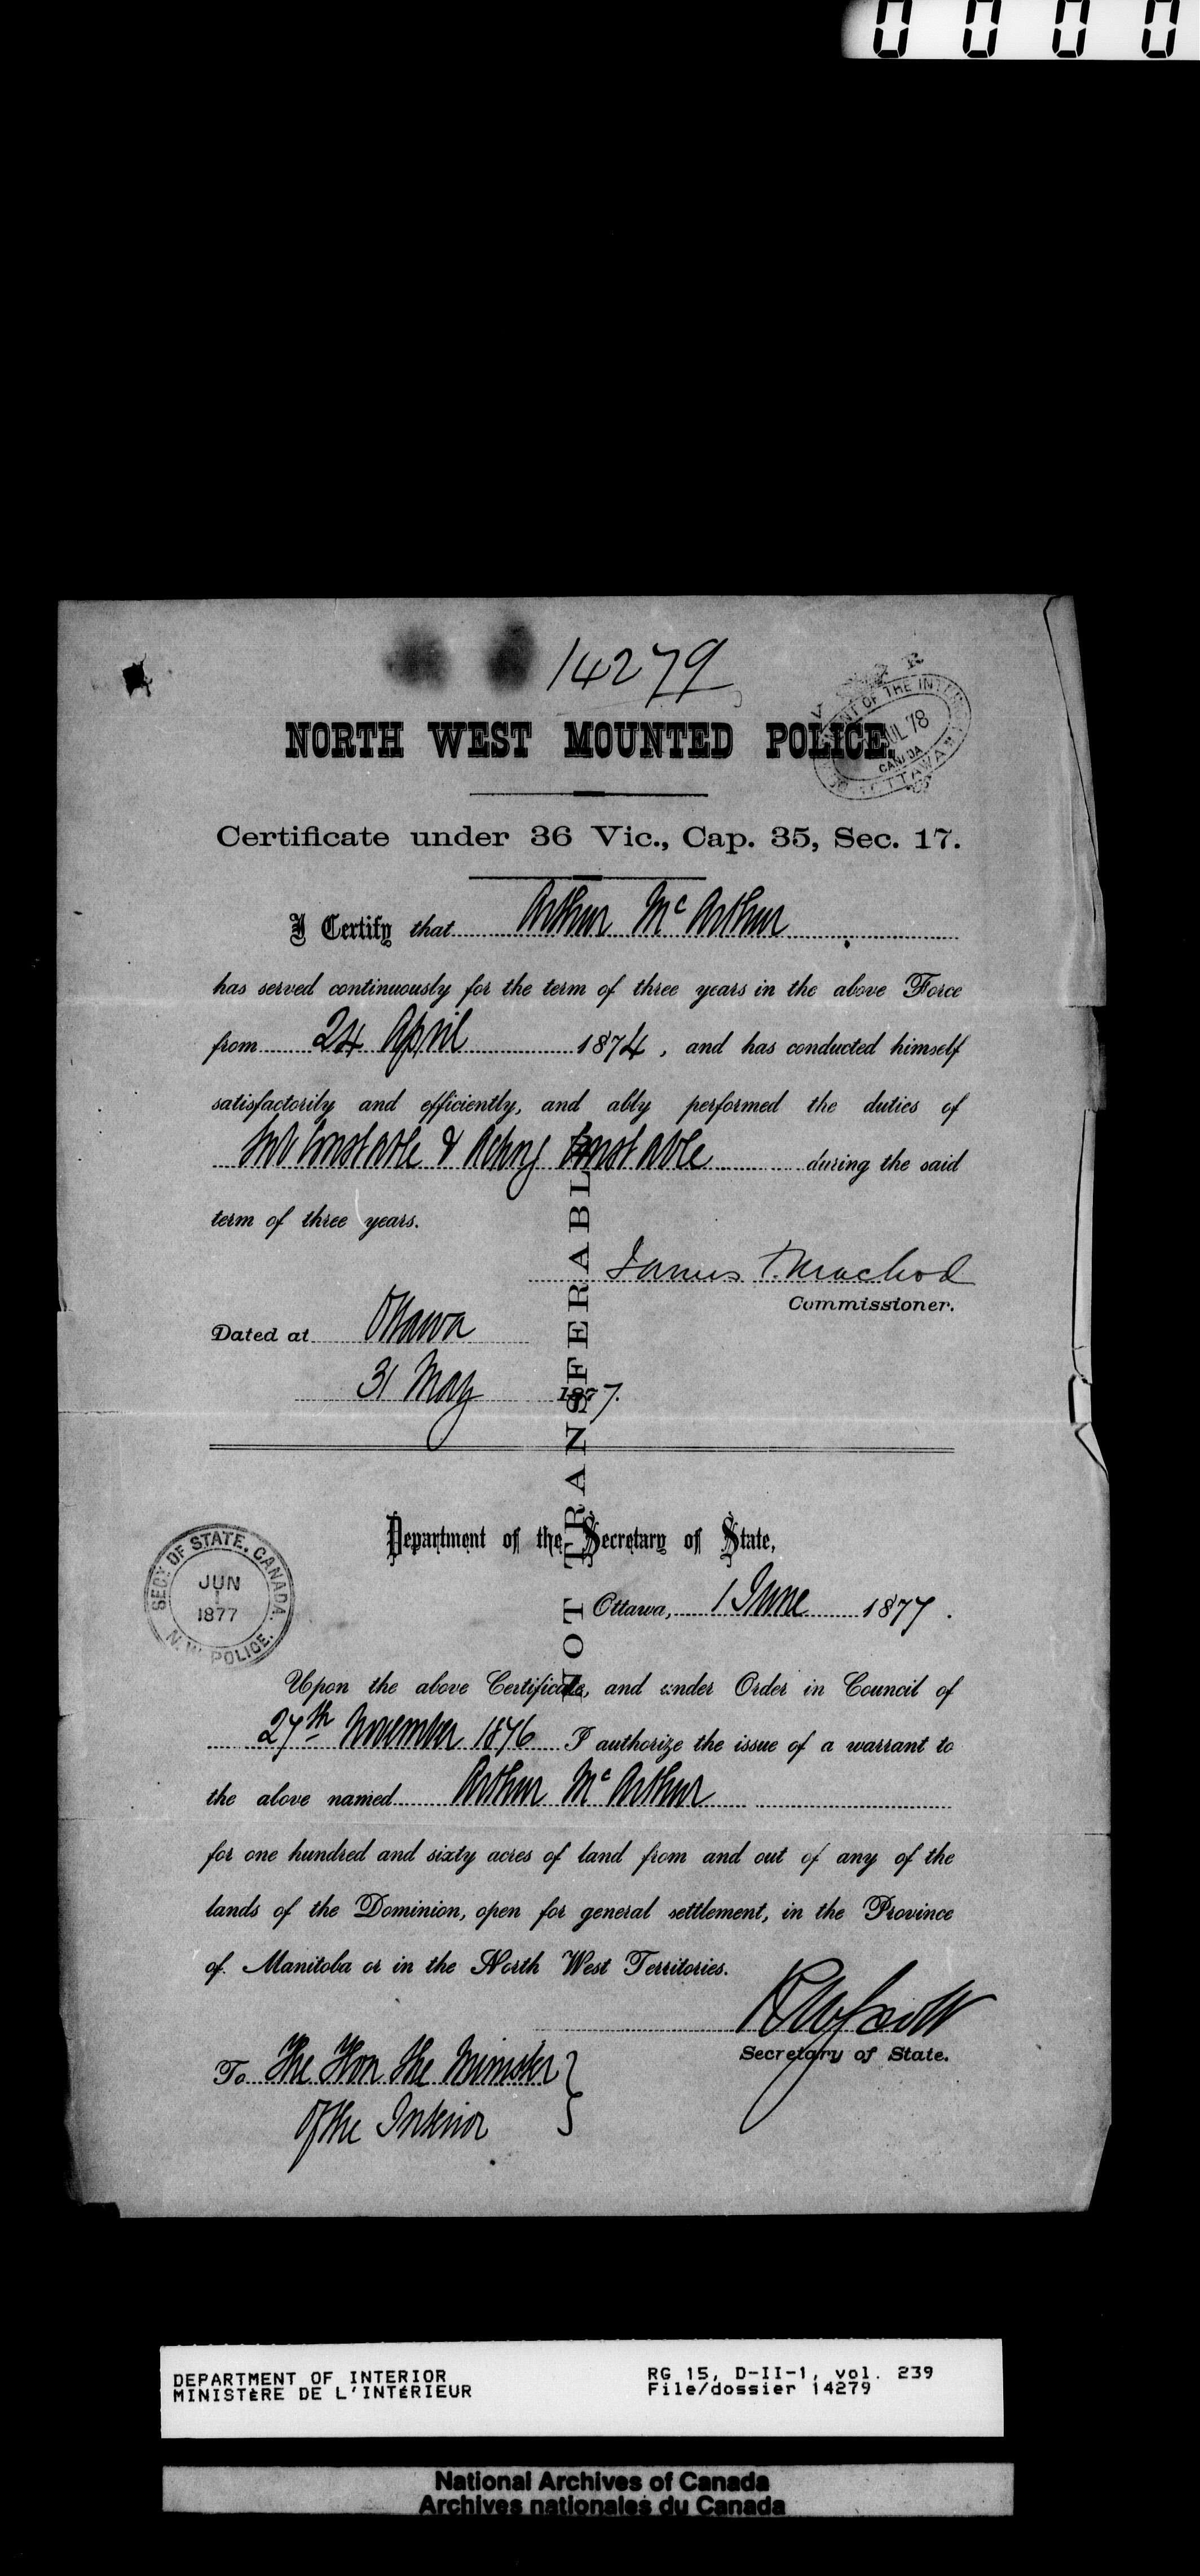 0 0 0 0
14279
NORTH WEST MOUNTED POLICE.
OF THE INT
JUL 78
CANADA
OTTAWA
Certificate under 36 Vic., Cap. 35, Sec. 17.
I Certify that Arthur Mc Arthur
has served continuously for the term of three years in the above Force
from 24 April 1874, and has conducted himself
satisfactorily and efficiently, and ably performed the duties of
Sub Constable & Acting Constable during the said
term of three years.
James F. Macleod
Commissioner.
Dated at Ottawa
31 May 1877.
NOT TRANSFERABLE
Department of the Secretary of State,
SECY OF STATE, CANADA.
JUN
1
1877
N.W. POLICE.
Ottawa, 1 June 1877.
Upon the above Certificate, and under Order in Council of
27th November 1876 I authorize the issue of a warrant to
the above named Arthur Mc Arthur
for one hundred and sixty acres of land from and out of any of the
lands of the Dominion, open for general settlement, in the Province
of Manitoba or in the North West Territories.
R W Scott
Secretary of State.
To The Hon the Minister
of the Interior
DEPARTMENT OF INTERIOR RG 15, D-II-1, vol. 239
MINISTÈRE DE L'INTÉRIEUR File/dossier 14279
National Archives of Canada
Archives nationales du Canada